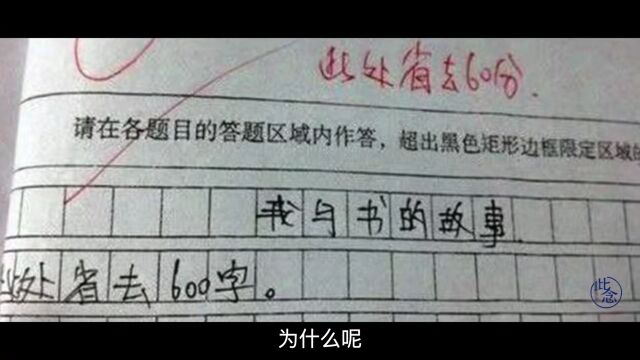 此处省去60分.
请在各题目的答题区域内作答，超出黑色矩形边框限定区域的
我与书的故事
此处省去600字。
此念
为什么呢